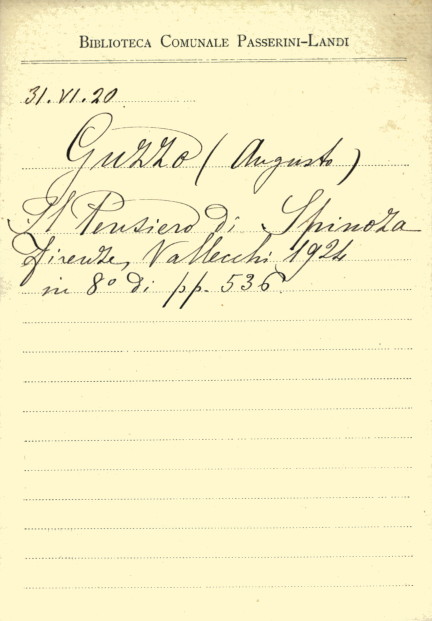 BIBLIOTECA COMUNALE PASSERINI-LANDI
31.VI.20
Guzzo (Augusto)
Il Pensiero di Spinoza
Firenze, Vallecchi 1924
in 8° di pp. 536.